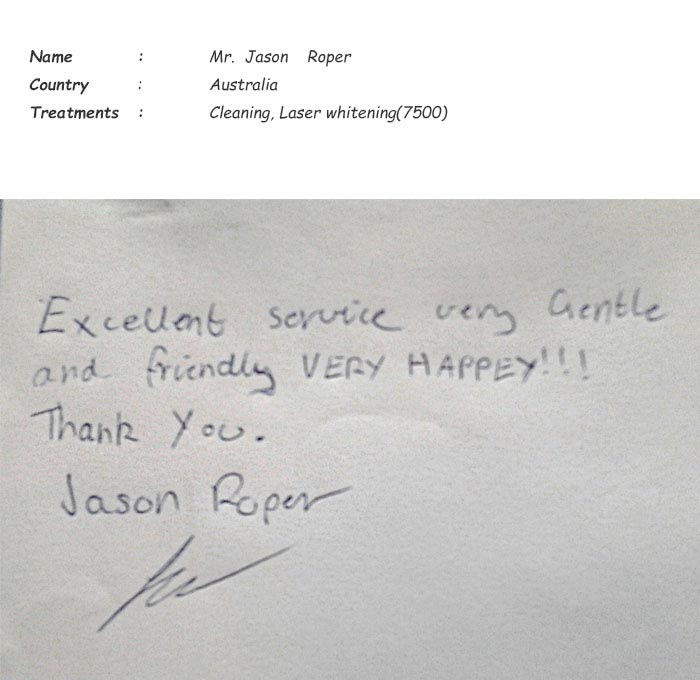 Name : Mr. Jason Roper
Country : Australia
Treatments : Cleaning, Laser whitening(7500)
Excellent service very Gentle
and friendly VERY HAPPEY!!!
Thank You.
Jason Roper